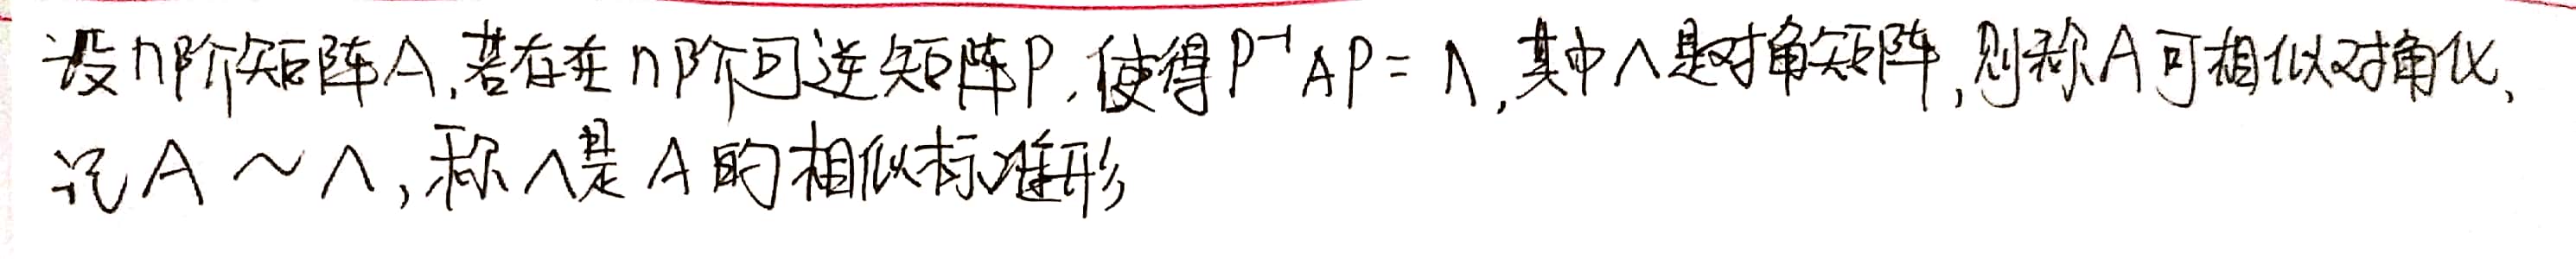 设n阶矩阵A,若存在n阶可逆矩阵P,使得P⁻¹AP=Λ,其中Λ是对角矩阵,则称A可相似对角化,
记A~Λ,称Λ是A的相似标准形